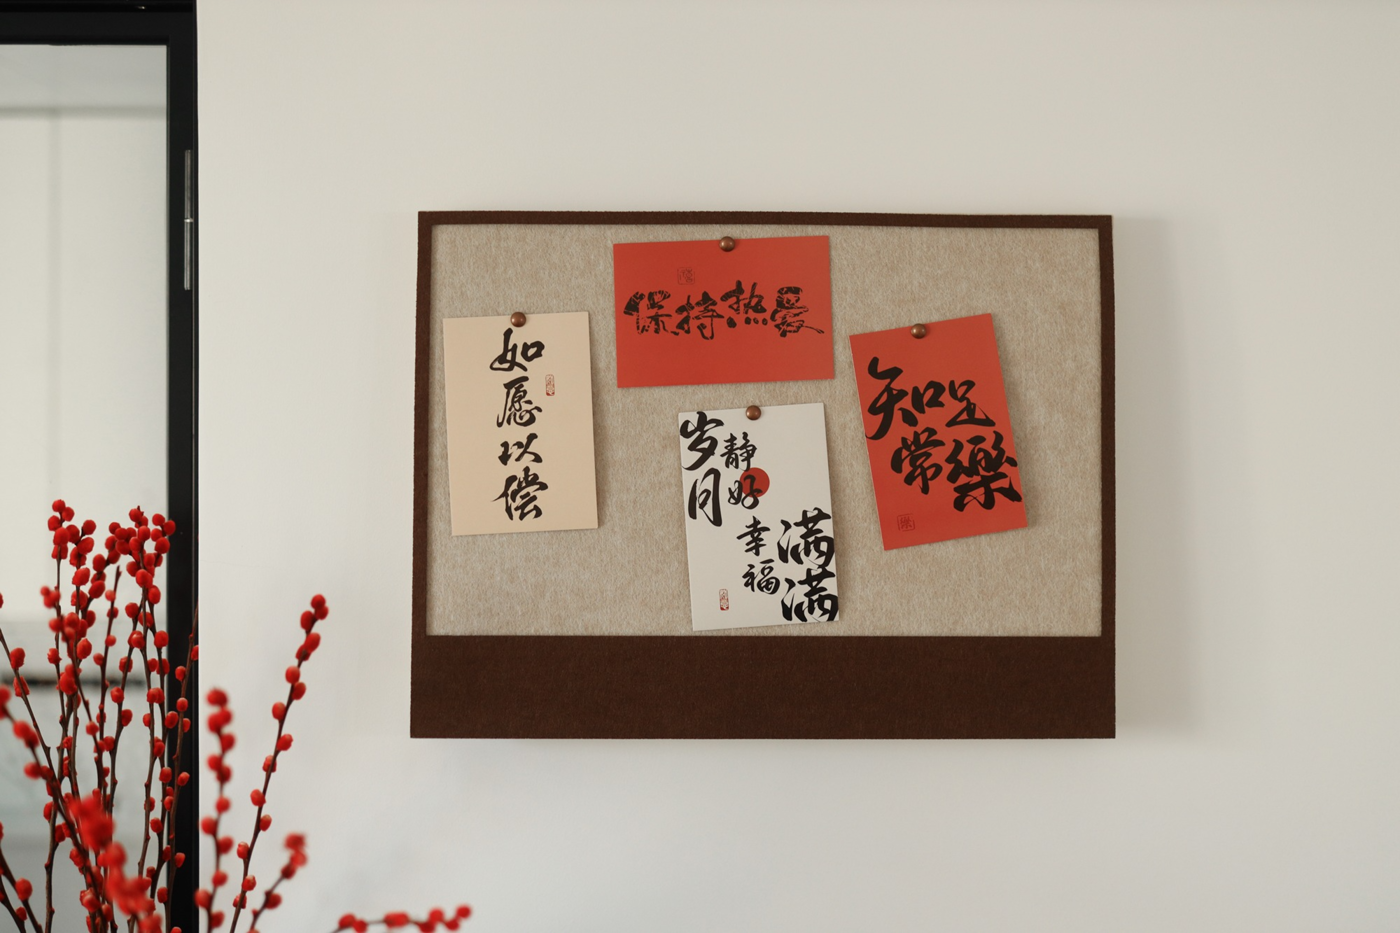 如愿以偿
保持热爱
岁月
静好
幸福
满满
知足
常樂